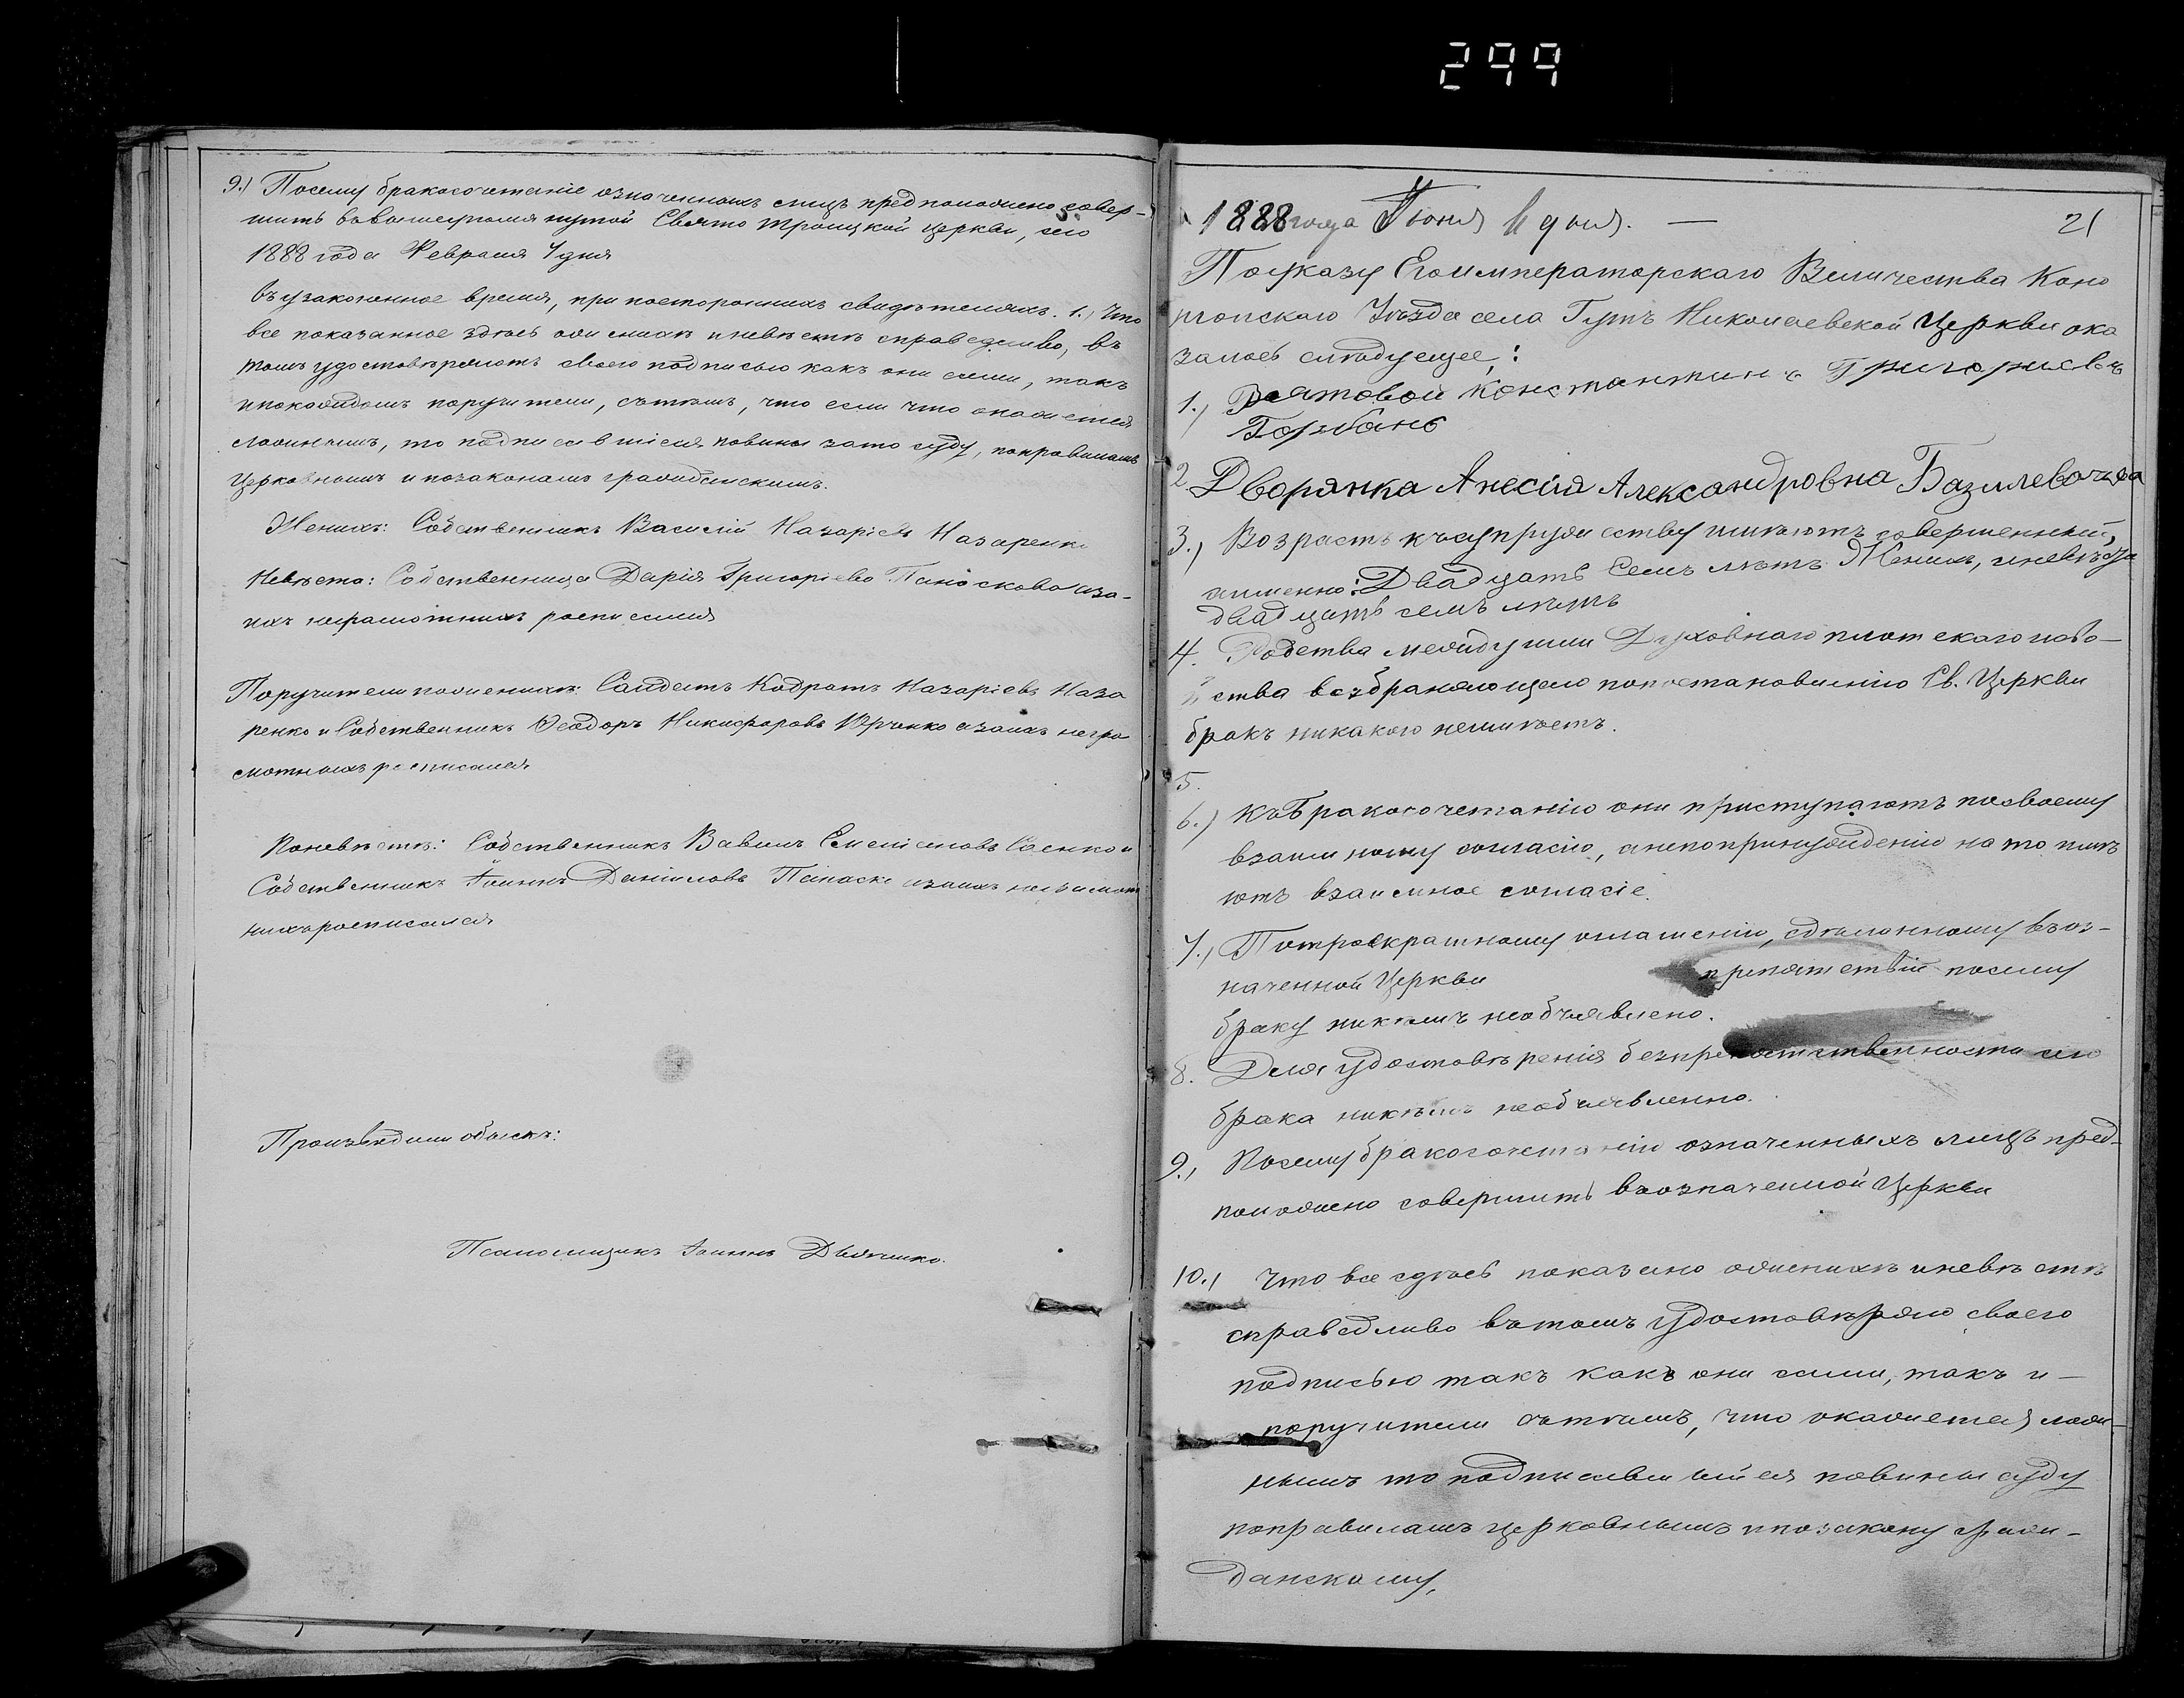 299
9.) Посему бракосочетаніе означенныхъ лицъ предположено совер-
шить вовышеупомянутой Свято Троицкой церкви, сего
1888 года Февраля 7 дня
въ узаконенное время, при постороннихъ свидѣтеляхъ. 1., Что
все показанное здѣсь о женихѣ и невѣстѣ справедливо, въ
томъ удостовѣряютъ своею подписью какъ они сами, такъ
и покаждомъ поручители, съ тѣмъ, что если что окажется
ложнымъ, то подписавшіеся повины зато суду, поправиламъ
церковнымъ и позаконамъ гражданскимъ.
Женихъ: Собственникъ Василій Назаріевъ Назаренко
Невѣста: Собственница Дарія Григоріева а за-
нихъ неграмотныхъ росписался
Поручители по женихѣ: Солдатъ Кодратъ Назаріевъ Наза
ренко и Собственникъ Ѳеодоръ Никифоровъ Юрченко а за ихъ негра
мотныхъ росписался
Поневѣстѣ: Собственникъ Вавилъ и
Собственникъ Іоаннъ Даниловъ а за ихъ неграмот
ныхъ росписался
Произведили обыскъ:
Псаломщикъ Іоаннъ
21
1888 года Іюня дня. —
По указу Его императорскаго Величества Коно
топскаго Уѣзда села Гутъ Николаевской Церкви ока
залось слѣдующее:
1., Рядовой Константинъ Григориевъ
Горбань
2. Дворянка Анесия Александровна Базилевочева
3., Возрастъ къ супружеству имѣютъ совершенный,
а именно: Двадцать Семъ лѣтъ Женихъ, и невѣста
двадцать семъ лѣтъ
4. Родства между ими Духовнаго плотскаго и сво-
йства возбраняющаго по постановленію Св. Церкви
бракъ никакого неимѣетъ.
5.
6.) Къ Бракосочетанію они приступаютъ посвоему
взаимному согласію, а непопринужденію на то имѣ
ютъ взаимное согласіе.
7., По троекратному оглашенію, сдѣланному въ оз-
наченной Церкви препятствій посему
браку никѣмъ необъявлено.
8. Для удостовѣренія безпрепятственности сего
брака никѣмъ необъявленно.
9., Посему бракосочетанію означенныхъ лицъ пред-
положено совершить въ означенной Церкви
10., Что все сдѣсь показано о женихѣ и невѣстѣ
справедливо въ томъ удостовѣряю своего
подписью такъ какъ они сами, такъ и —
поручители съ тѣмъ, что окажется лож-
нымъ то подписавшийся повины суду
поправиламъ церковнымъ и позакону граж-
данскому.